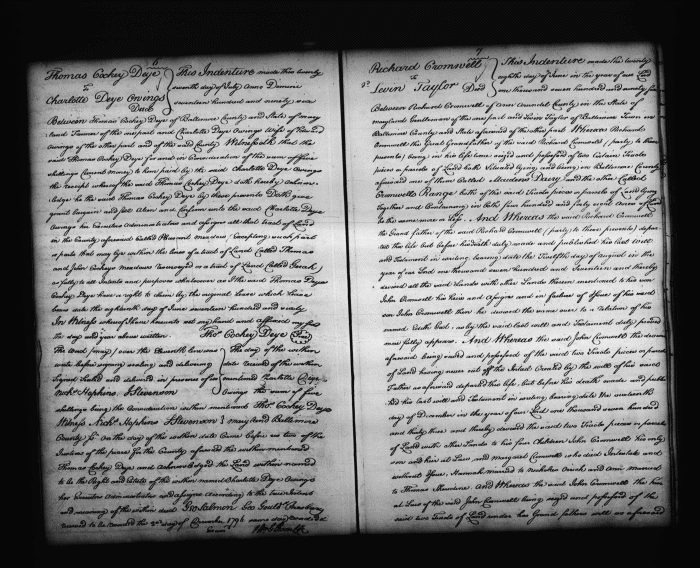 6
Thomas Cockey Deye
to
Charlotte Deye Owings
Deed
This Indenture made this twenty
seventh day of July Anno Domini
seventeen hundred and ninety six
Between Thomas Cockey Deye of Baltimore County and State of Mary
land of the one part and Charlotte Deye Owings wife of
Owings of the other part and of the said County Witnesseth that the
said Thomas Cockey Deye for and in Consideration of the sum of five
shillings Current money to him paid by the said Charlotte Deye Owings
the receipt whereof the said Thomas Cockey Deye doth hereby acknow
ledge he the said Thomas Cockey Deye by these presents Doth give
grant bargain and sell alien and Confirm unto the said Charlotte Deye
Owings her Executors administrators and assigns all that tract of Land
in the County aforesaid Called Pleasant Meadow Excepting such part
or parts that may lye within the lines of a tract of Land Called Thomas
and John Cockeys Meadows resurveyed or a tract of Land Called
as fully to all Intents and purposes whatsoever as I the said Thomas Deye
Cockey Deye have a right to them by the original lease which Lease
bears date the eighteenth day of June seventeen hundred and ninety
In Witness whereof I have hereunto set my hand and affixed my seal
the day and year above written Thos Cockey Deye Seal
The word [may] over the Eleventh line was
wrote before signing sealing and delivering
Signed Sealed and delivered in presence of us
Nichs Hopkins J Stevenson
The day of the within
date received of the within
mentioned Charlotte Deye
Owings the sum of five
shillings being the Consideration within mentioned Thos Cockey Deye
Witness Nichs Hopkins J Stevenson Maryland Baltimore
County sc On the day of the within date Came before us two of the
Justices of the peace for the County aforesaid the within mentioned
Thomas Cockey Deye and Acknowledged the Land within named
to be the Right and Estate of the within named Charlotte Deye Owings
her Executors Administrators and assigns according to the true Intent
and meaning of the within deed Geo Salmon Geo Gould Presbury
received to be recorded the day of December 1796 same day recorded &
7
Richard Cromwell
to
Levin Taylor Deed
This Indenture made the twenty
eighth day of June in the year of our Lord
one thousand seven hundred and ninety
Between Richard Cromwell of Ann Arundel County in the State of
Maryland Gentleman of the one part and Levin Taylor of Baltimore Town in
Baltimore County and State aforesaid of the other part Whereas Richard
Cromwell the Great Grandfather of the said Richard Cromwell (party to these
presents) being in his life time seized and possessed of two Certain Tracts
pieces or parcels of Land both situated lying and being in Baltimore County
aforesaid one of them Called and the other Called
Cromwells Range both of the said Tracts pieces or parcels of Land lying
Together and Containing in both five hundred and forty eight acres of Land
be the same more or less. And Whereas the said Richard Cromwell
the Grand father of the said Richard Cromwell (party to these presents) depar
ted this life but before his death duly made and published his last will
and Testament in writing bearing date the Twelfth day of August in the
year of our Lord one thousand seven hundred and Seventeen and thereby
devised all the said Lands with other Lands therein mentioned to his son
John Cromwell his heirs and assigns and in failure of issue of his said
son John Cromwell then he devised the same over to a relation of his
named as by the said last will and Testament duly proved
may fully appear. And Whereas the said John Cromwell the devisee
aforesaid being seized and possessed of the said two Tracts pieces or parcels
of Land having never cut off the Intail Created by the will of his said
Father as aforesaid departed this life, but before his death made and publis
hed his last will and Testament in writing bearing date the
day of December in the year of our Lord one thousand seven hundred
and thirty three and thereby devised the said two Tracts pieces or parcels
of Land with other Lands to his four Children John Cromwell his only
son and heir at Law and Margaret Cromwell who died Intestate and
without Issue, Hannah married to Nicholas Orrick and Ann married
to Thomas And Whereas the said John Cromwell the heir
at Law of the said John Cromwell being seized and possessed of the
said two Tracts of Land under his Grand fathers will as aforesaid